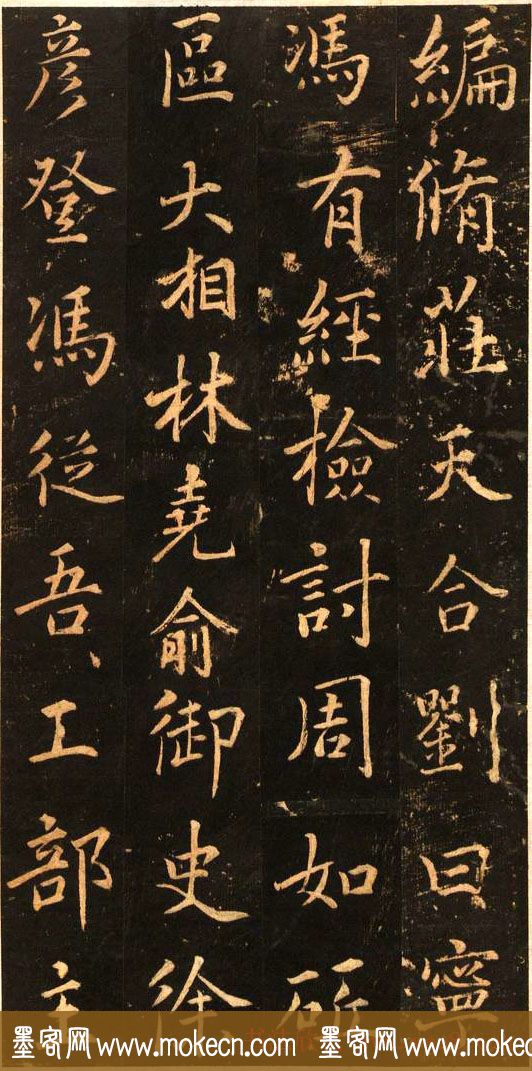 編脩莊天合劉曰寧
馮有經檢討周如砥
區大相林堯俞御史徐
彦登馮從吾工部主
墨客网 www.mokecn.com 墨客网 www.mokecn.com